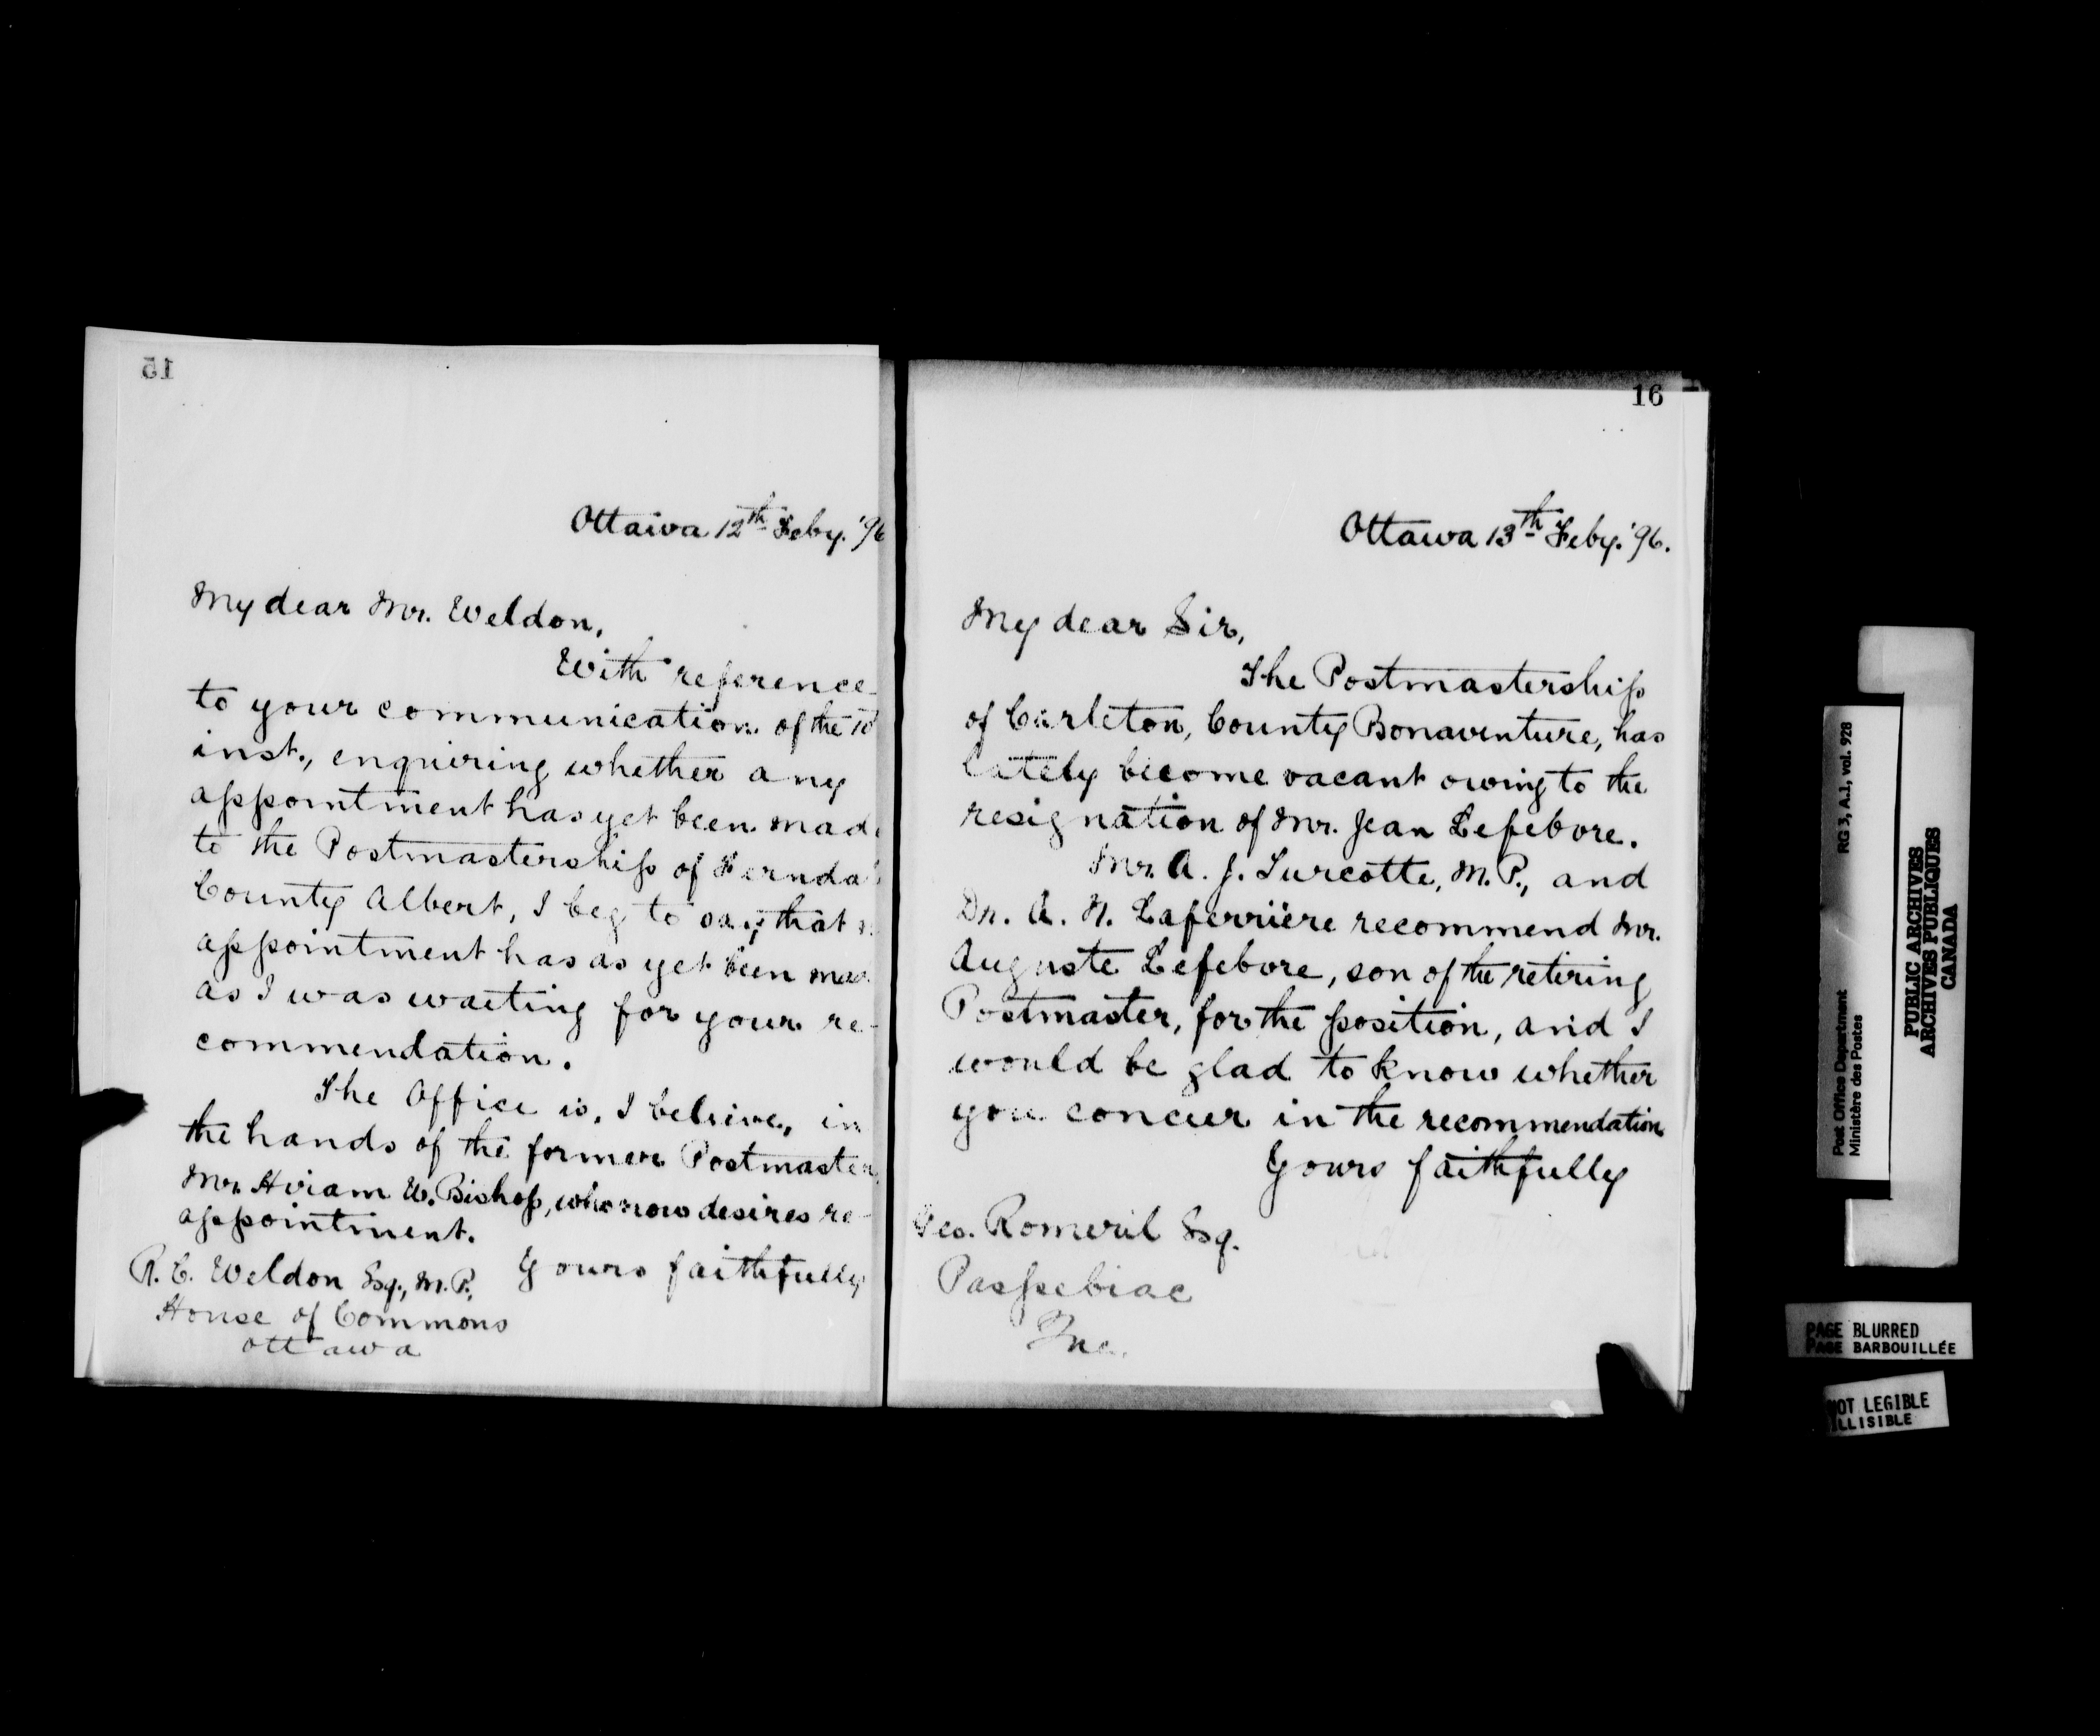 15
Ottawa 12th Feby. '96
My dear Mr. Weldon,
With reference
to your communication of the
inst., enquiring whether any
appointment has yet been made
to the Postmastership of Ferndal
County Albert, I beg to say that
appointment has as yet been mad
as I was waiting for your re-
commendation.
The Office is, I believe, in
the hands of the former Postmaster,
Mr. Hiram W. Bishop, who now desires re-
appointment.
Yours faithfully
R. C. Weldon Esq., M.P.,
House of Commons
Ottawa
16
Ottawa 13th Feby. '96.
My dear Sir,
The Postmastership
of Carleton, County Bonaventure, has
lately become vacant owing to the
resignation of Mr. Jean Lefebvre.
Mr. A. J. Turcotte, M.P., and
Dr. A. N. Laferrière recommend Mr.
Auguste Lefebvre, son of the retiring
Postmaster, for the position, and I
would be glad to know whether
you concur in the recommendation
Yours faithfully
Geo. Romeril Esq.
Paspebiac
Que.
RG 3, A.1, vol. 928
Post Office Department
Ministère des Postes
PUBLIC ARCHIVES
ARCHIVES PUBLIQUES
CANADA
PAGE BLURRED
PAGE BARBOUILLÉE
NOT LEGIBLE
ILLISIBLE